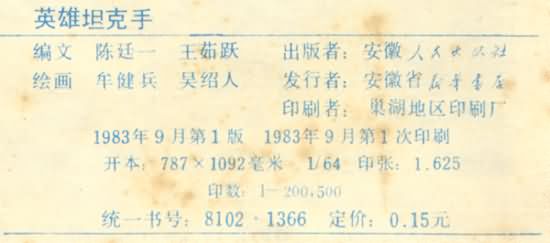 英雄坦克手
编文 陈廷一 王茹跃 出版者：安徽人民出版社
绘画 牟健兵 吴绍人 发行者：安徽省新华书店
印刷者：巢湖地区印刷厂
1983年9月第1版 1983年9月第1次印刷
开本：787×1092毫米 1/64 印张：1.625
印数：1—200,500
统一书号：8102·1366 定价：0.15元